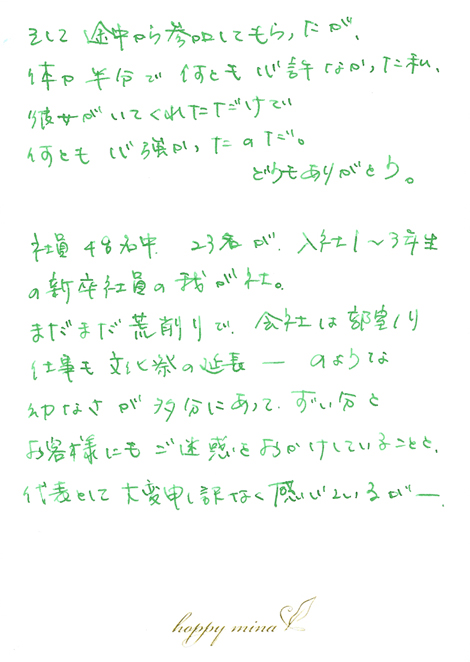 そして 途中から参加してもらったが、
体力 半分で 何とも 心許なかった私、
彼女がいてくれただけで
何とも 心強かったのだ。
どうもありがとう。
社員 48名中 23名が、入社1〜3年生
の新卒社員の我が社。
まだまだ荒削りで、会社は部室ノリ
仕事も 文化祭の延長 ー のような
幼なさが 多分にあって、ずい分と
お客様にもご迷惑をおかけしていることと、
代表として 大変申し訳なく 感じているがー。
happy mina